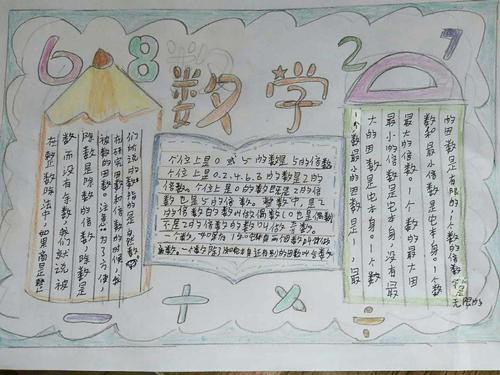 6 8 数学 2 7
在整数除法中,如果商是整
数而没有余数,我们就说被
除数是除数的倍数,除数是
被除数的因数。注意:为了方便,
在研究因数和倍数的时候,我
们所说的数指的是自然数。
个位上是0或5的数是5的倍数
个位上是0.2.4.6.8的数是2的
倍数。个位上是0的数既是2的倍
数也是5的倍数。整数中,是2
的倍数的数叫做偶数(0也是偶数)
不是2的倍数的数叫做奇数。
的因数是有限的,1个数的倍数
数和最小倍数是它本身。1个数
最大的倍数。1个数的最大因
最小的倍数是它本身,没有
大的因数是它本身。1个数
1个数最小的因数是1,最
无限的
+ × ÷